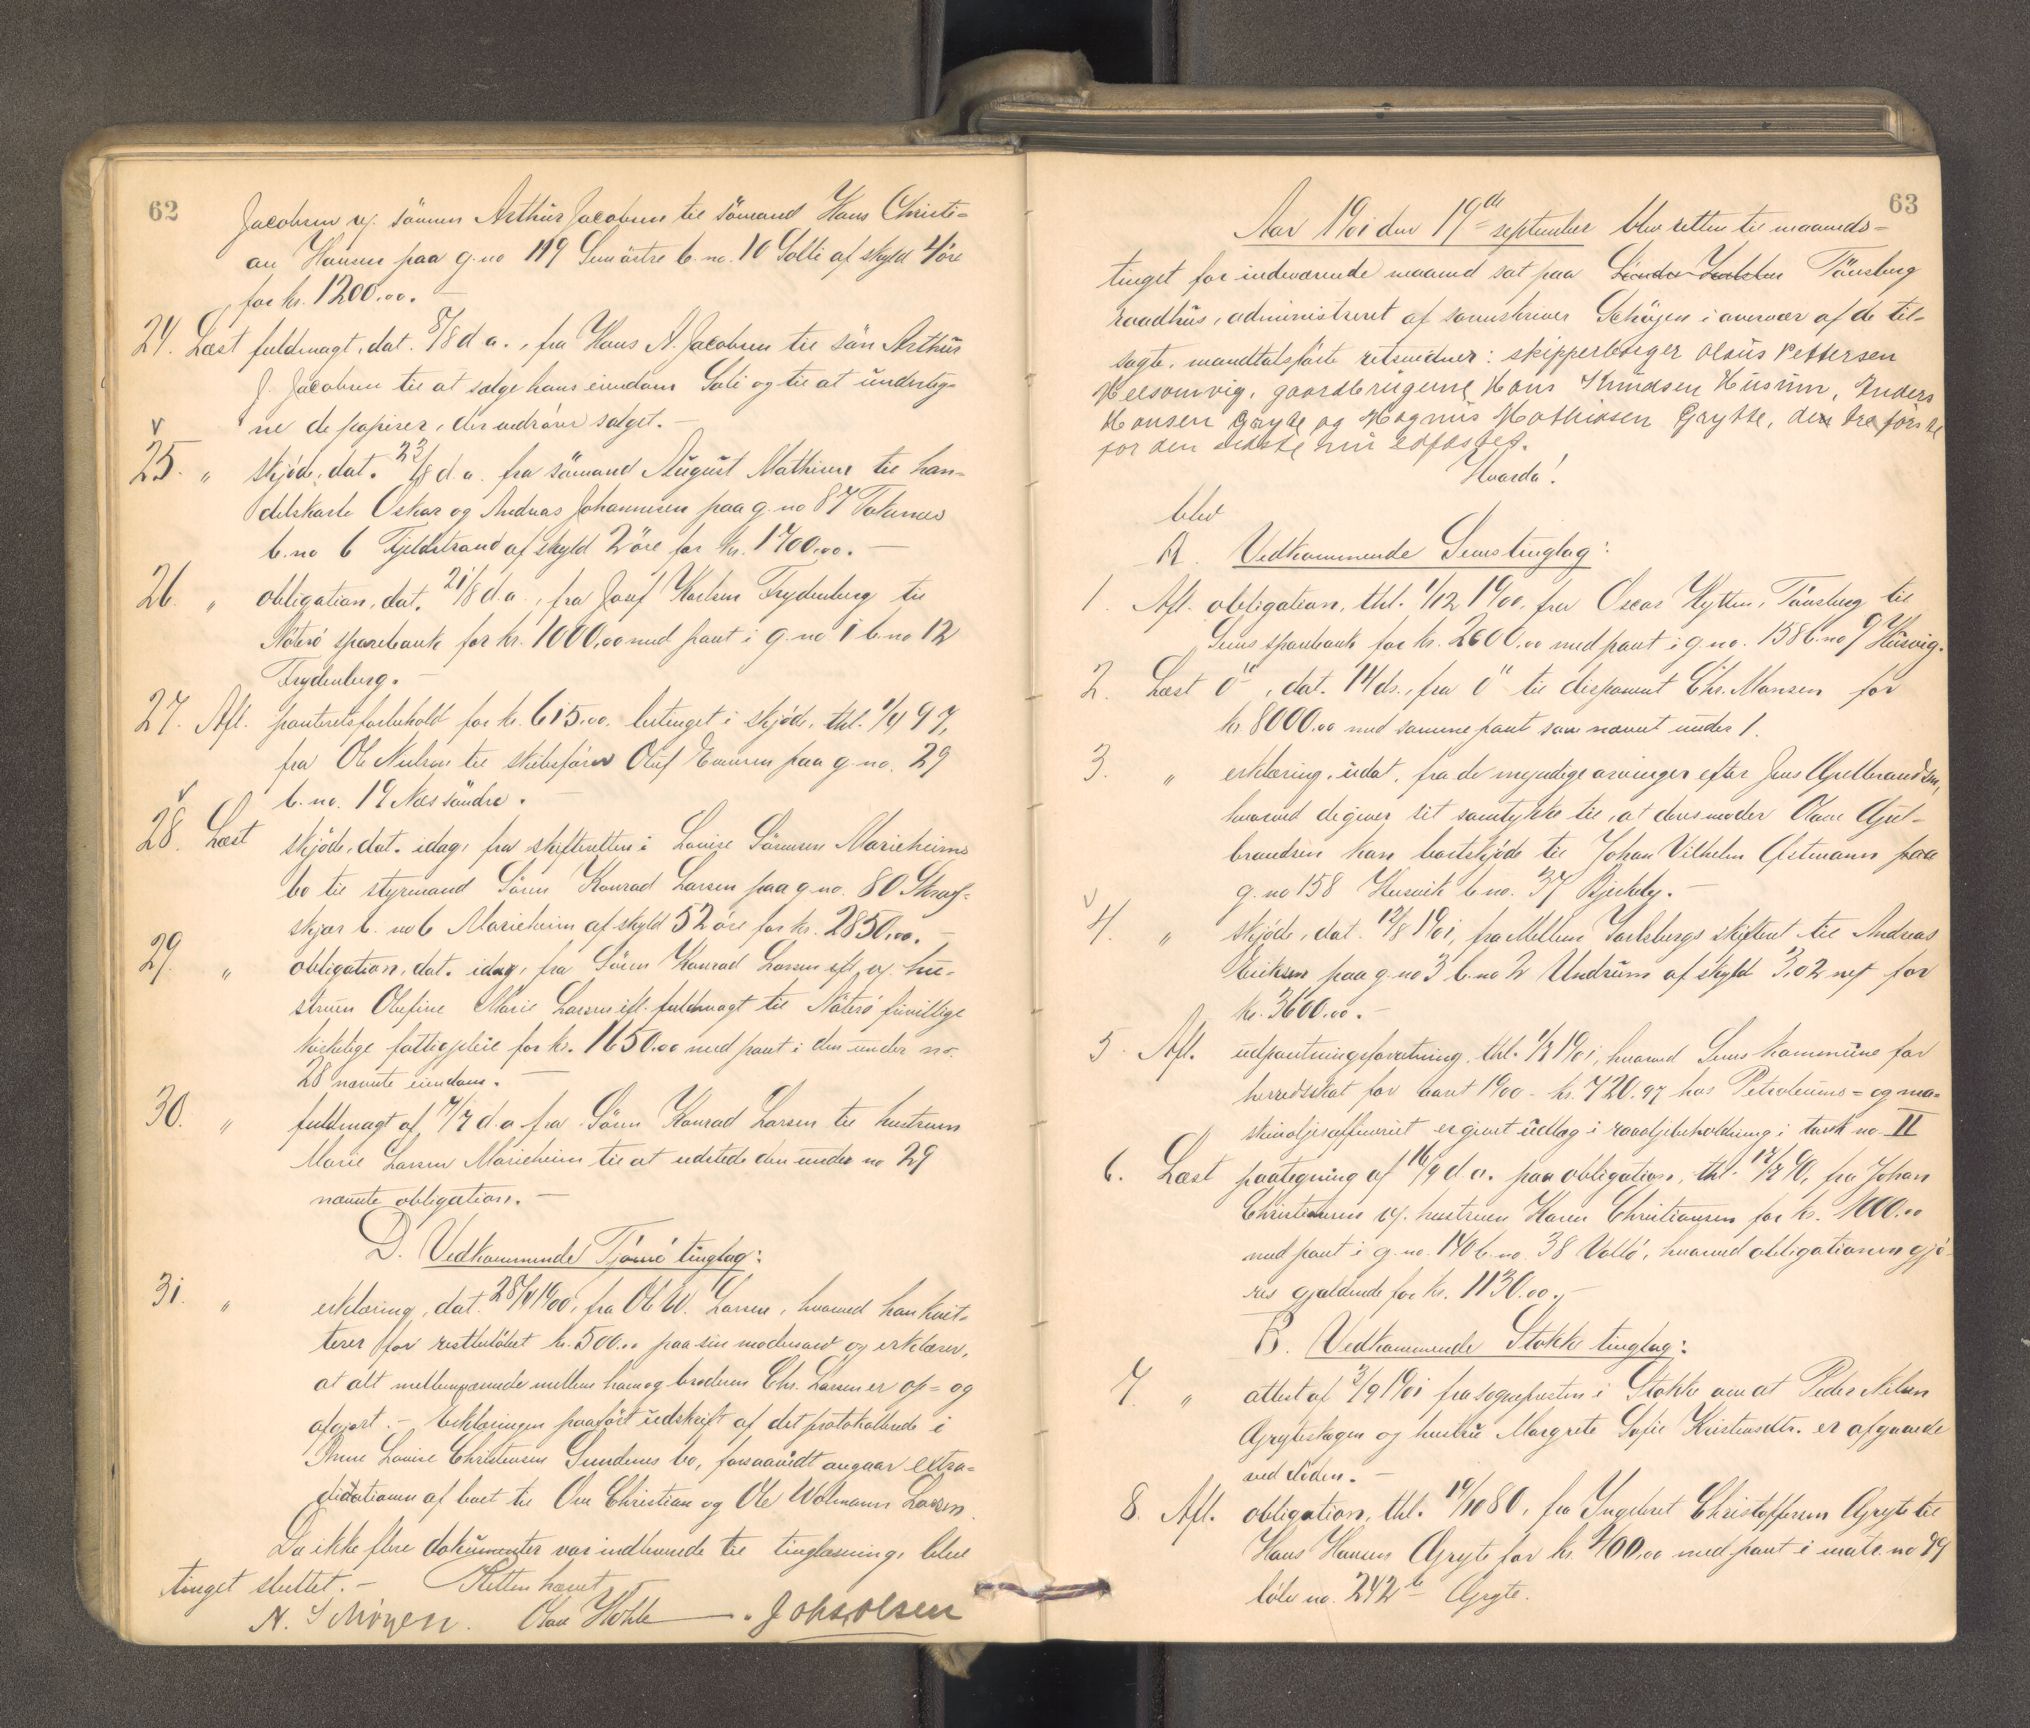 62
Jacobsen v/ sønnen Arthur Jacobsen til sömand Hans Christi=
an Hansen paa g.no 119 Semöstre b.no. 10 Solli af skyld 4 öre
for kr. 1200.00. –
24. Læst fuldmagt, dat. 8/8 d.a., fra Hans A. Jacobsen til sön Arthur
J. Jacobsen til at sælge hans eiendom Soli og til at underteg-
ne de papirer, der vedrörer salget. –
v
25. " skjöde, dat. 22/8 d.a. fra sömand August Mathisen til han-
delskarle Oskar og Andreas Johannesen paa g.no 87 Tokenæs
b.no 6 Fjeldstrand af skyld 2 öre for kr. 1700.00. –
26. " obligation, dat. 21/8 d.a., fra Josef Karlsen Frydenberg til
Nöterö sparebank for kr. 1000.00 med pant i g.no 1 b.no 12
Frydenberg. –
27. Afl. panteretsforbehold for kr. 615.00, betinget i skjöde, thl. 1/4 97,
fra Ole Nielsen til skibsförer Oluf Evensen paa g.no. 29
b.no. 19 Næs söndre. –
v
28. Læst skjöde, dat. idag, fra skifteretten i Lovise Sörensen Marieheims
bo til styrmand Sören Konrad Larsen paa g.no. 80 Skraf-
skjær b.no 6 Marieheim af skyld 52 öre for kr. 2850.00. –
29. " obligation, dat. idag, fra Sören Konrad Larsen efl. v/ hu-
struen Olefine Marie Larsen ifl. fuldmagt til Nöterö frivillige
kirkelige fattigpleie for kr. 1650.00 med pant i den under no.
28 nævnte eiendom. –
30. " fuldmagt af 4/7 d.a. fra Sören Konrad Larsen til hustruen
Marie Larsen Marieheim til at udstede den under no 29
nævnte obligation. –
D. Vedkommende Tjömö tinglag:
31. " erklæring, dat. 28/4 1900, fra Ole W. Larsen, hvorved han kvit-
terer for restbelöbet kr. 500.00 paa sin mödrearv og erklærer,
at alt mellemværende mellem ham og broderen Chr. Larsen er op= og
afgjort. – Erklæringen paafört udskrift af det protokollerede i
Anne Lovise Christensen Sundenes bo, forsaavidt angaar extra-
ditationen af boet til Ove Christian og Ole Wolmann Larsen.
Da ikke flere dokumenter var indleverede til tinglæsning, blev
tinget sluttet. – Retten hævet
N. Schöyen. Olav Holte. Johs. Olsen
63
Aar 1901 den 19de september blev retten til maaneds=
tinget for indeværende maaned sat paa Tönsberg
raadhus, administreret af sorenskriver Schöyen i overvær af de til-
sagte, mandtalsförte retsvidner: skipperborger Olaus Pettersen
Melsomvig, gaardbrugerne Hans Knudsen Husum, Anders
Hansen Gryte og Magnus Mathiasen Grytte, den tre förste
for den sidste nu edfæstet.
Hvorda!
blev
A. Vedkommende Sems tinglag:
1. Afl. obligation, thl. 1/12 1900, fra Oscar Hytten, Tönsberg til
Sems sparebank for kr. 2600.00 med pant i g.no. 158 b.no 9 Husvig.
2. Læst o", dat. 14 ds., fra o" til disponent Chr. Monsen for
kr. 8000.00 med samme pant som nævnt under 1.
3. " erklæring, udat., fra de myndige arvinger efter Jens Gulbrandsen,
hvorved de giver sit samtykke til, at deres moder Olave Gul-
brandsen kan bortskjöde til Johan Vilhelm Østmann paa
g.no 158 Husvik b.no. 37 Bjerkely. –
v
4. " skjöde, dat. 12/8 1901, fra Mellem Jarlsbergs skifteret til Andreas
Eriksen paa g.no 3 b.no 2 Undrum af skyld 3,02 nyt for
kr. 3600.00. –
5. Afl. udpantningsforretning, thl. 1/7 1901, hvorved Sems kommune for
herredsskat for aaret 1900 – kr. 720.97 hos Petroleums= og ma-
skinoljeraffineriet er gjort udlæg i raaoljebeholdning i tank no. II
6. Læst paategning af 16/9 d.a. paa obligation, thl. 17/7 90, fra Johan
Christiansen v/ hustruen Karen Christiansen for kr. 1000.00
med pant i g.no. 140 b.no. 38 Vallö, hvorved obligationen gjö-
res gjældende for kr. 1130.00. –
B. Vedkommende Stokke tinglag:
7. " attest af 3/9 1901 fra sognepresten i Stokke om at Peder Nilsen
Gryteskogen og hustru Margrete Sofie Kristensdtr. er afgaaede
ved döden. –
8. Afl. obligation, thl. 19/10 80, fra Ingebret Christoffersen Gryte til
Hans Hansen Gryte for kr. 400.00 med pant i matr. no 79
löbe no. 242 b Gryte.